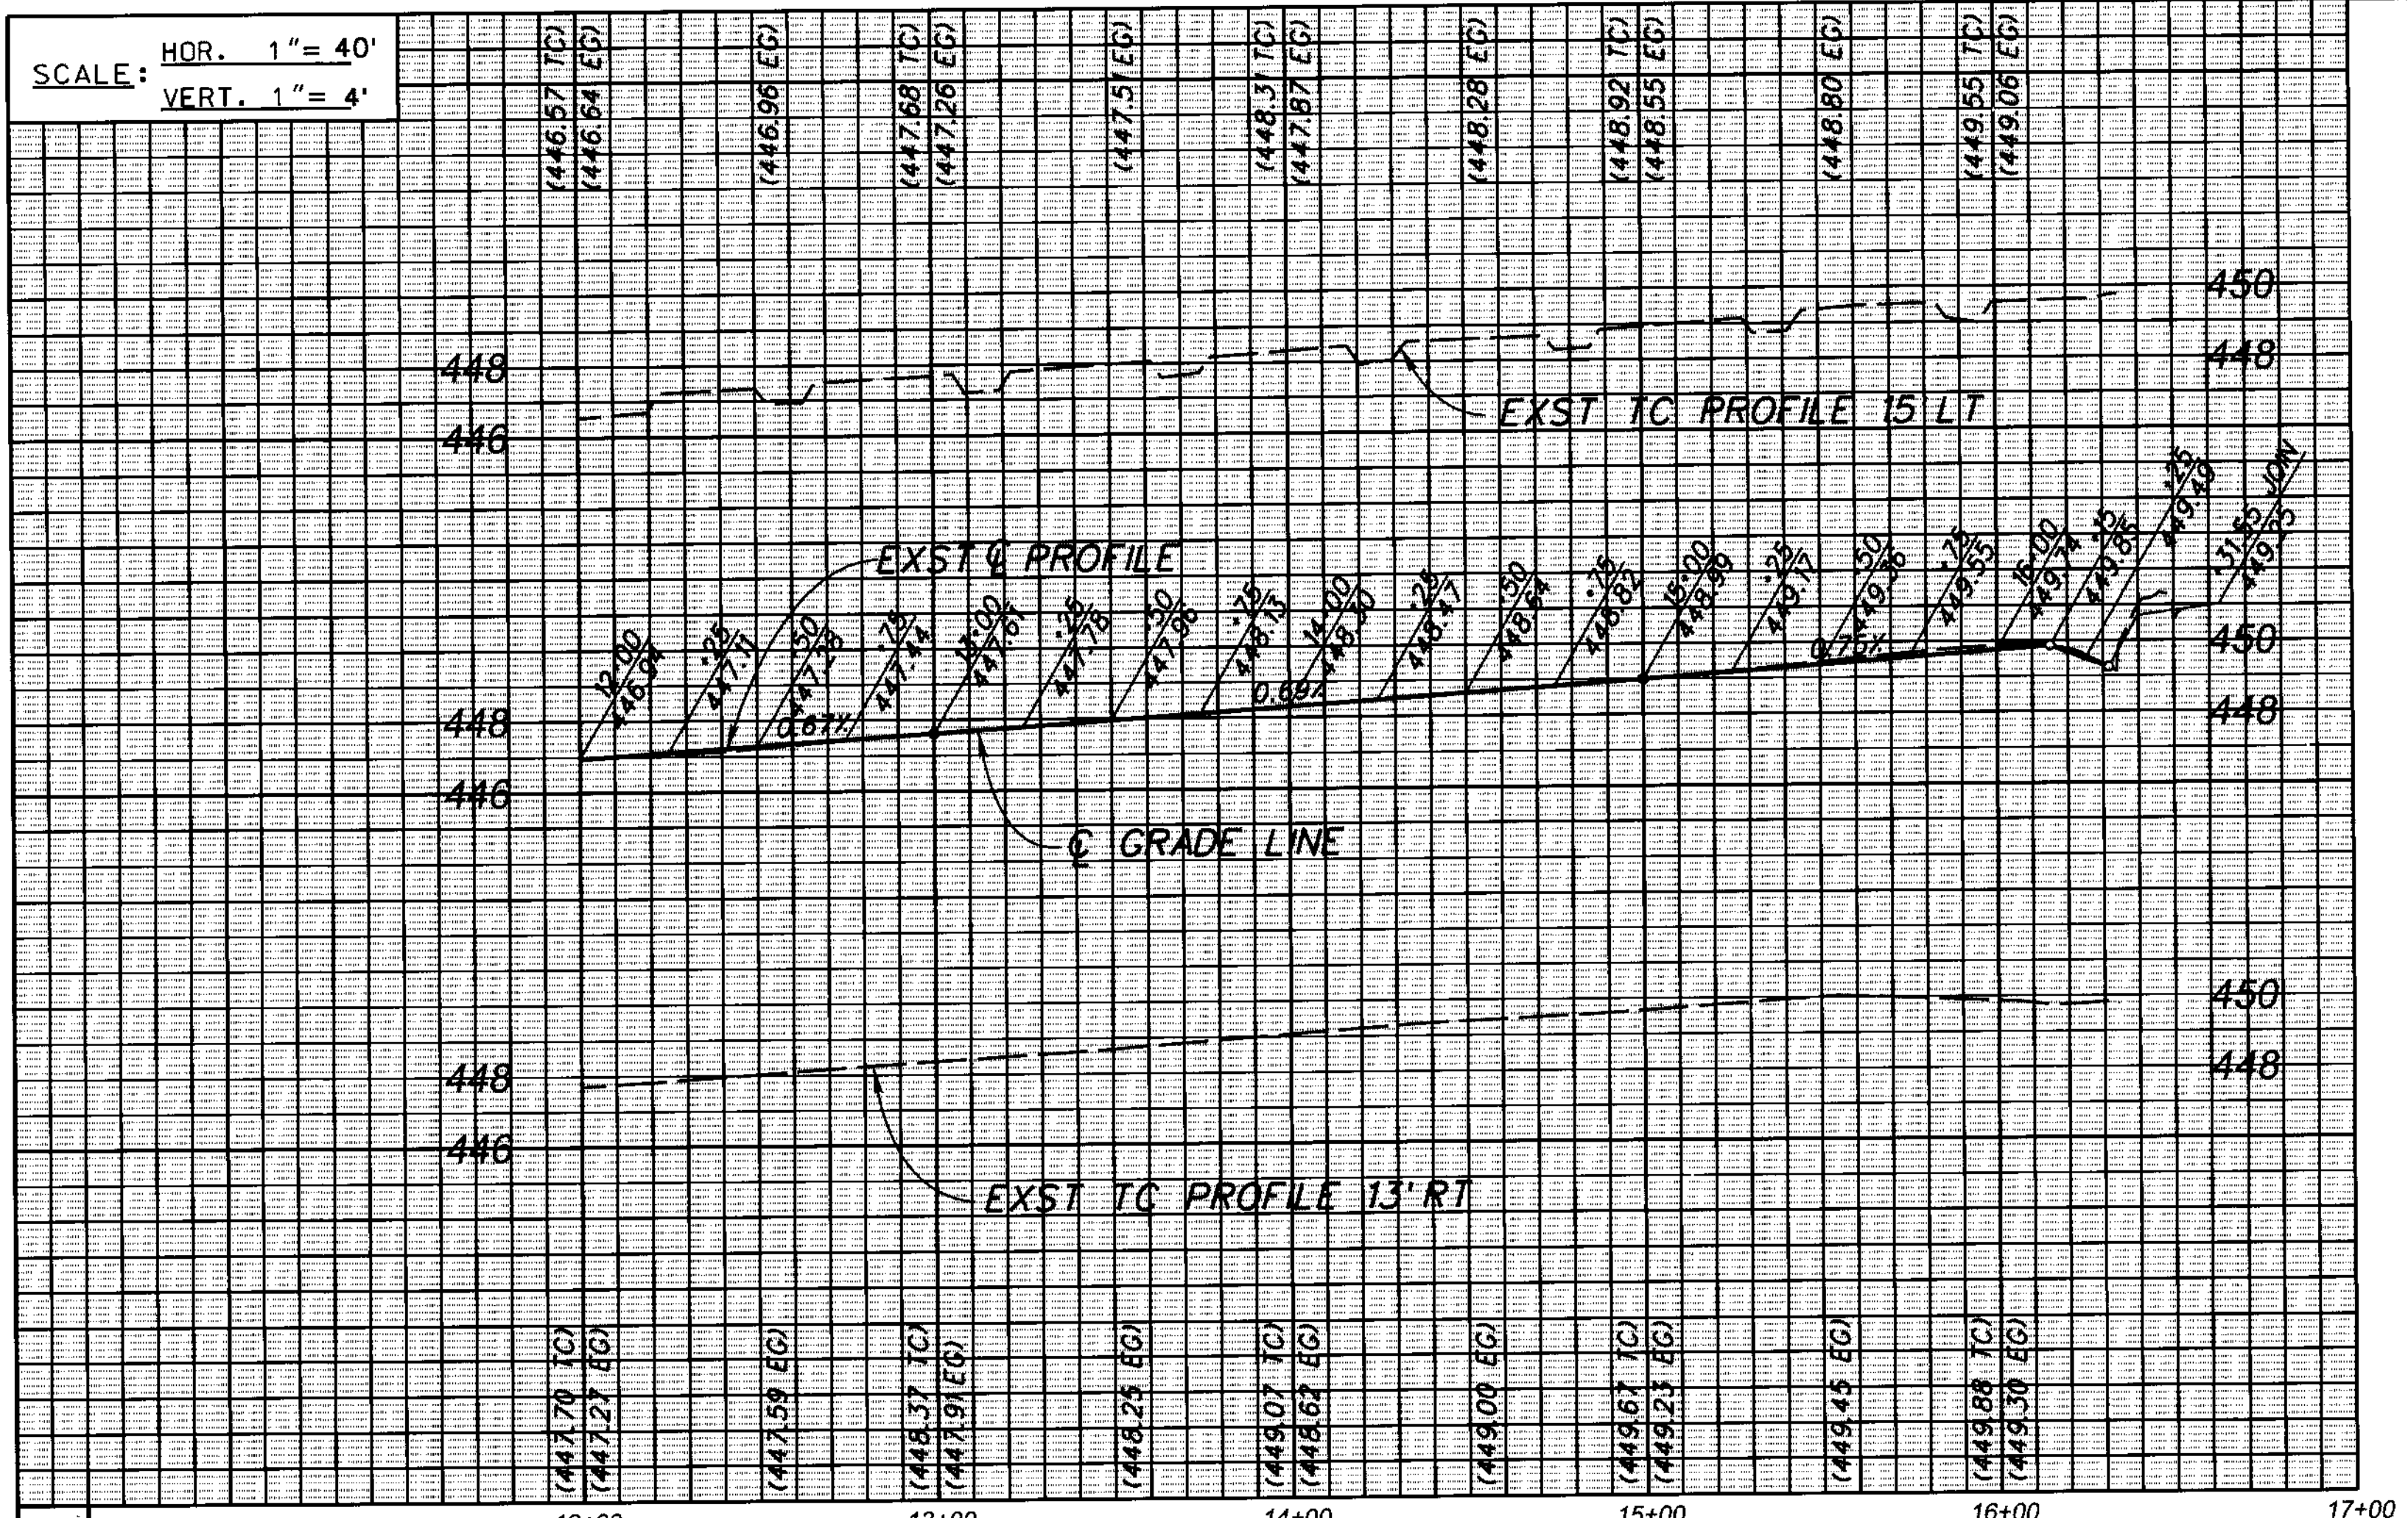 SCALE: HOR. 1"= 40'
VERT. 1"= 4'
(446.57 TC)
(446.64 EG)
(446.96 EG)
(447.68 TC)
(447.26 EG)
(447.51 EG)
(448.31 TC)
(447.87 EG)
(448.28 EG)
(448.92 TC)
(448.55 EG)
(448.80 EG)
(449.55 TC)
(449.06 EG)
450
448
448
446
EXST TC PROFILE 15' LT
EXST ℄ PROFILE
12+00
446.94
+.25
447.11
+.50
447.28
+.75
447.44
13+00
447.61
+.25
447.78
+.50
447.96
+.75
448.13
14+00
448.30
+.25
448.47
+.50
448.64
+.75
448.82
15+00
448.99
+.25
449.17
+.50
449.36
+.75
449.55
16+00
449.74
+.15
449.85
+.25
449.49
+.3155 JOIN
449.25
0.67%
0.69%
0.75%
450
448
448
446
℄ GRADE LINE
450
448
448
446
EXST TC PROFILE 13' RT
(447.70 TC)
(447.27 EG)
(447.59 EG)
(448.37 TC)
(447.91 EG)
(448.25 EG)
(449.07 TC)
(448.62 EG)
(449.00 EG)
(449.67 TC)
(449.23 EG)
(449.45 EG)
(449.88 TC)
(449.30 EG)
12+00
13+00
14+00
15+00
16+00
17+00